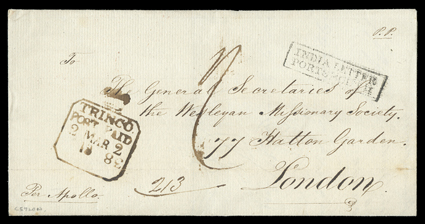 P.P.
To
The General Secretaries of
the Wesleyan Missionary Society,
77 Hatton Garden.
London
INDIA LETTER
PORTSMOUTH
TRINCO
POST PAID
2 MAR 2
Per Apollo
2/3
CEYLON